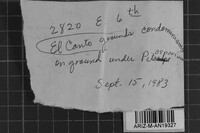 2820 E 6 th
El Canto grounds condominium
on ground under
Sept. 15, 1983
ARIZ-M-AN19327